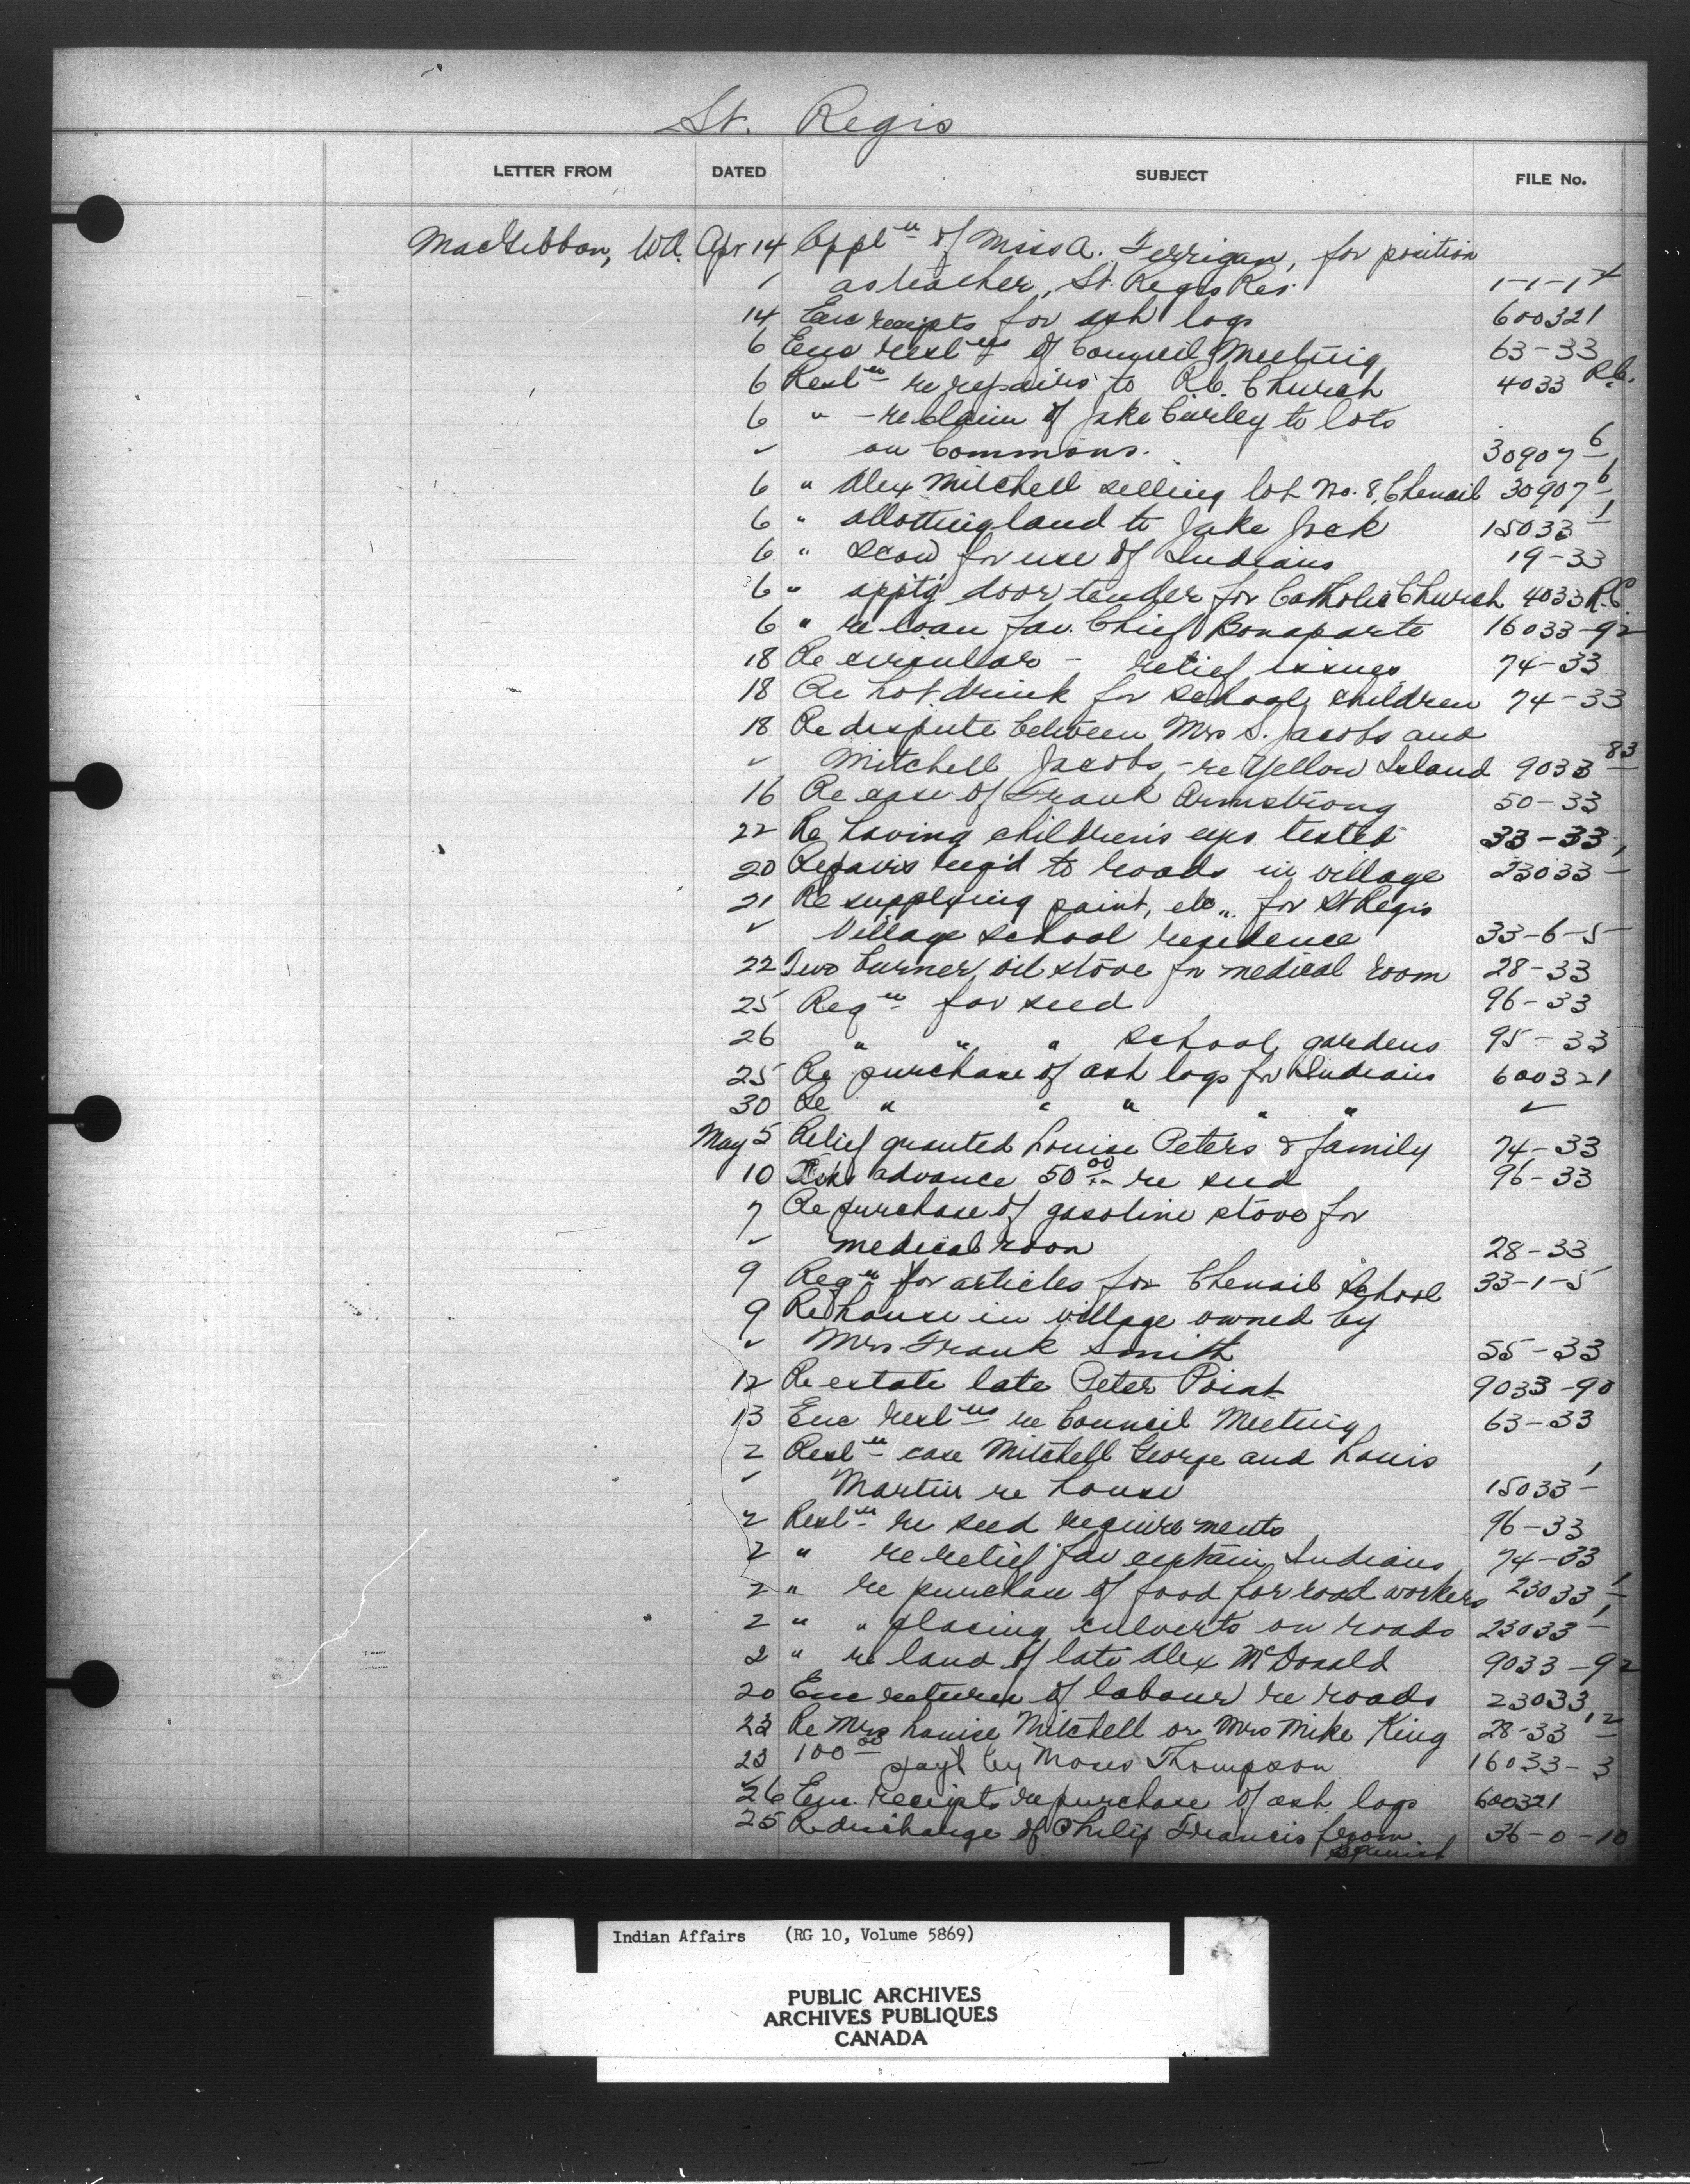 St. Regis
LETTER FROM DATED SUBJECT FILE No.
MacGibbon, W.A. Apr 14 Appl n of Miss A. Ferrigan, for position
as teacher, St. Regis Res. 1-1-1 4
14 Enc receipts for ash logs 600321
6 Enc resl ns of Council Meeting 63-33
6 Resl n re repairs to R.C. Church 4033 R.C.
6 " - re claim of Jake Curley to lots
✓ on Commons. 30907 6
6 " Alex Mitchell selling lot No. 8, Chenail 30907 6
6 " allotting land to Jake Jock 15033 1
6 " scow for use of Indians 19-33
6 " appt'g door tender for Catholic Church 4033 R.C.
6 " re loan fav. Chief Bonaparte 16033-92
18 Re circular - relief issues 74-33
18 Re hot drink for school children 74-33
18 Re dispute between Mrs S. Jacobs and
✓ Mitchell Jacobs, - re Yellow Island 9033 83
16 Re case of Frank Armstrong 50-33
22 Re having children's eyes tested 33-33
20 Repairs req'd to roads in village 23033 1
21 Re supplying paint, etc., for St Regis
✓ Village school residence 33-6-5
22 Two burner oil stove for medical room 28-33
25 Req n for seed 96-33
26 " " " school gardens 95-33
25 Re purchase of ash logs for Indians 600321
30 Re " " " " " ✓
May 5 Relief granted Louise Peters & family 74-33
10 Asks advance 50 00 re seed 96-33
7 Re purchase of gasoline stove for
✓ medical room 28-33
9 Req n for articles for Chenail School 33-1-5
9 Re house in village owned by
✓ Mrs Frank Smith 55-33
12 Re estate late Peter Point 9033-90
13 Enc resl ns re Council Meeting 63-33
2 Resl n case Mitchell George and Louis
✓ Martin re house 15033 1
2 Resl n re seed requirements 96-33
2 " re relief fav certain Indians 74-33
2 " re purchase of food for road workers 23033 1
2 " " placing culverts on roads 23033 1
2 " re land of late Alex McDonald 9033-92
20 Enc return of labour re roads 23033
23 Re Mrs Louise Mitchell or Mrs Mike King 28-33 12
23 100 00 pay't by Moses Thompson 16033-3
26 Enc. receipts re purchase of ash logs 600321
25 Re discharge of Philip Francis from 36-0-10
Spanish
Indian Affairs (RG 10, Volume 5869)
PUBLIC ARCHIVES
ARCHIVES PUBLIQUES
CANADA